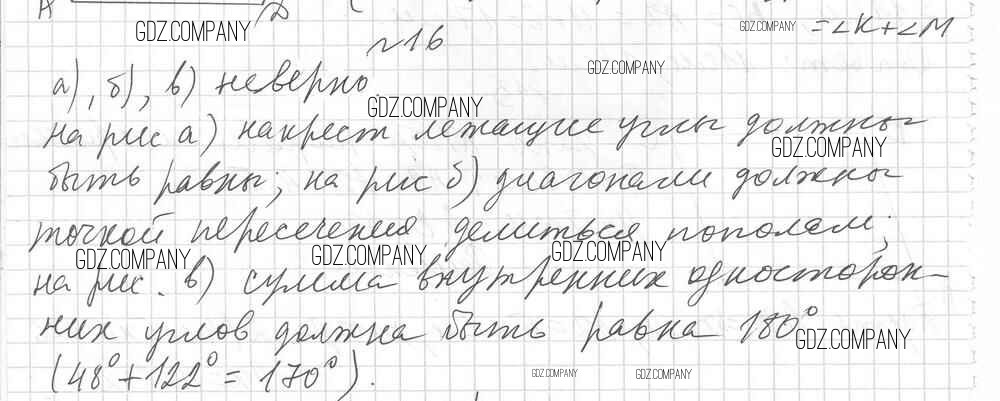 GDZ.COMPANY
GDZ.COMPANY = ∠K+∠M
№16
GDZ.COMPANY
а), б), в) неверно.
GDZ.COMPANY
на рис а) накрест лежащие углы должны
GDZ.COMPANY
быть равны; на рис б) диагонали должны
точкой пересечения делиться пополам;
GDZ.COMPANY GDZ.COMPANY GDZ.COMPANY
на рис. в) сумма внутренних односторон-
них углов должна быть равна 180°
GDZ.COMPANY
(48°+122°= 170°).
GDZ.COMPANY GDZ.COMPANY